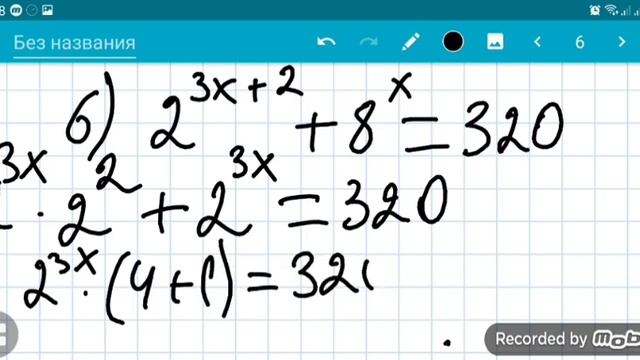 Без названия
6
б) 2^{3x+2} + 8^x = 320
3x · 2^2 + 2^{3x} = 320
2^{3x} · (4+1) = 32
Recorded by